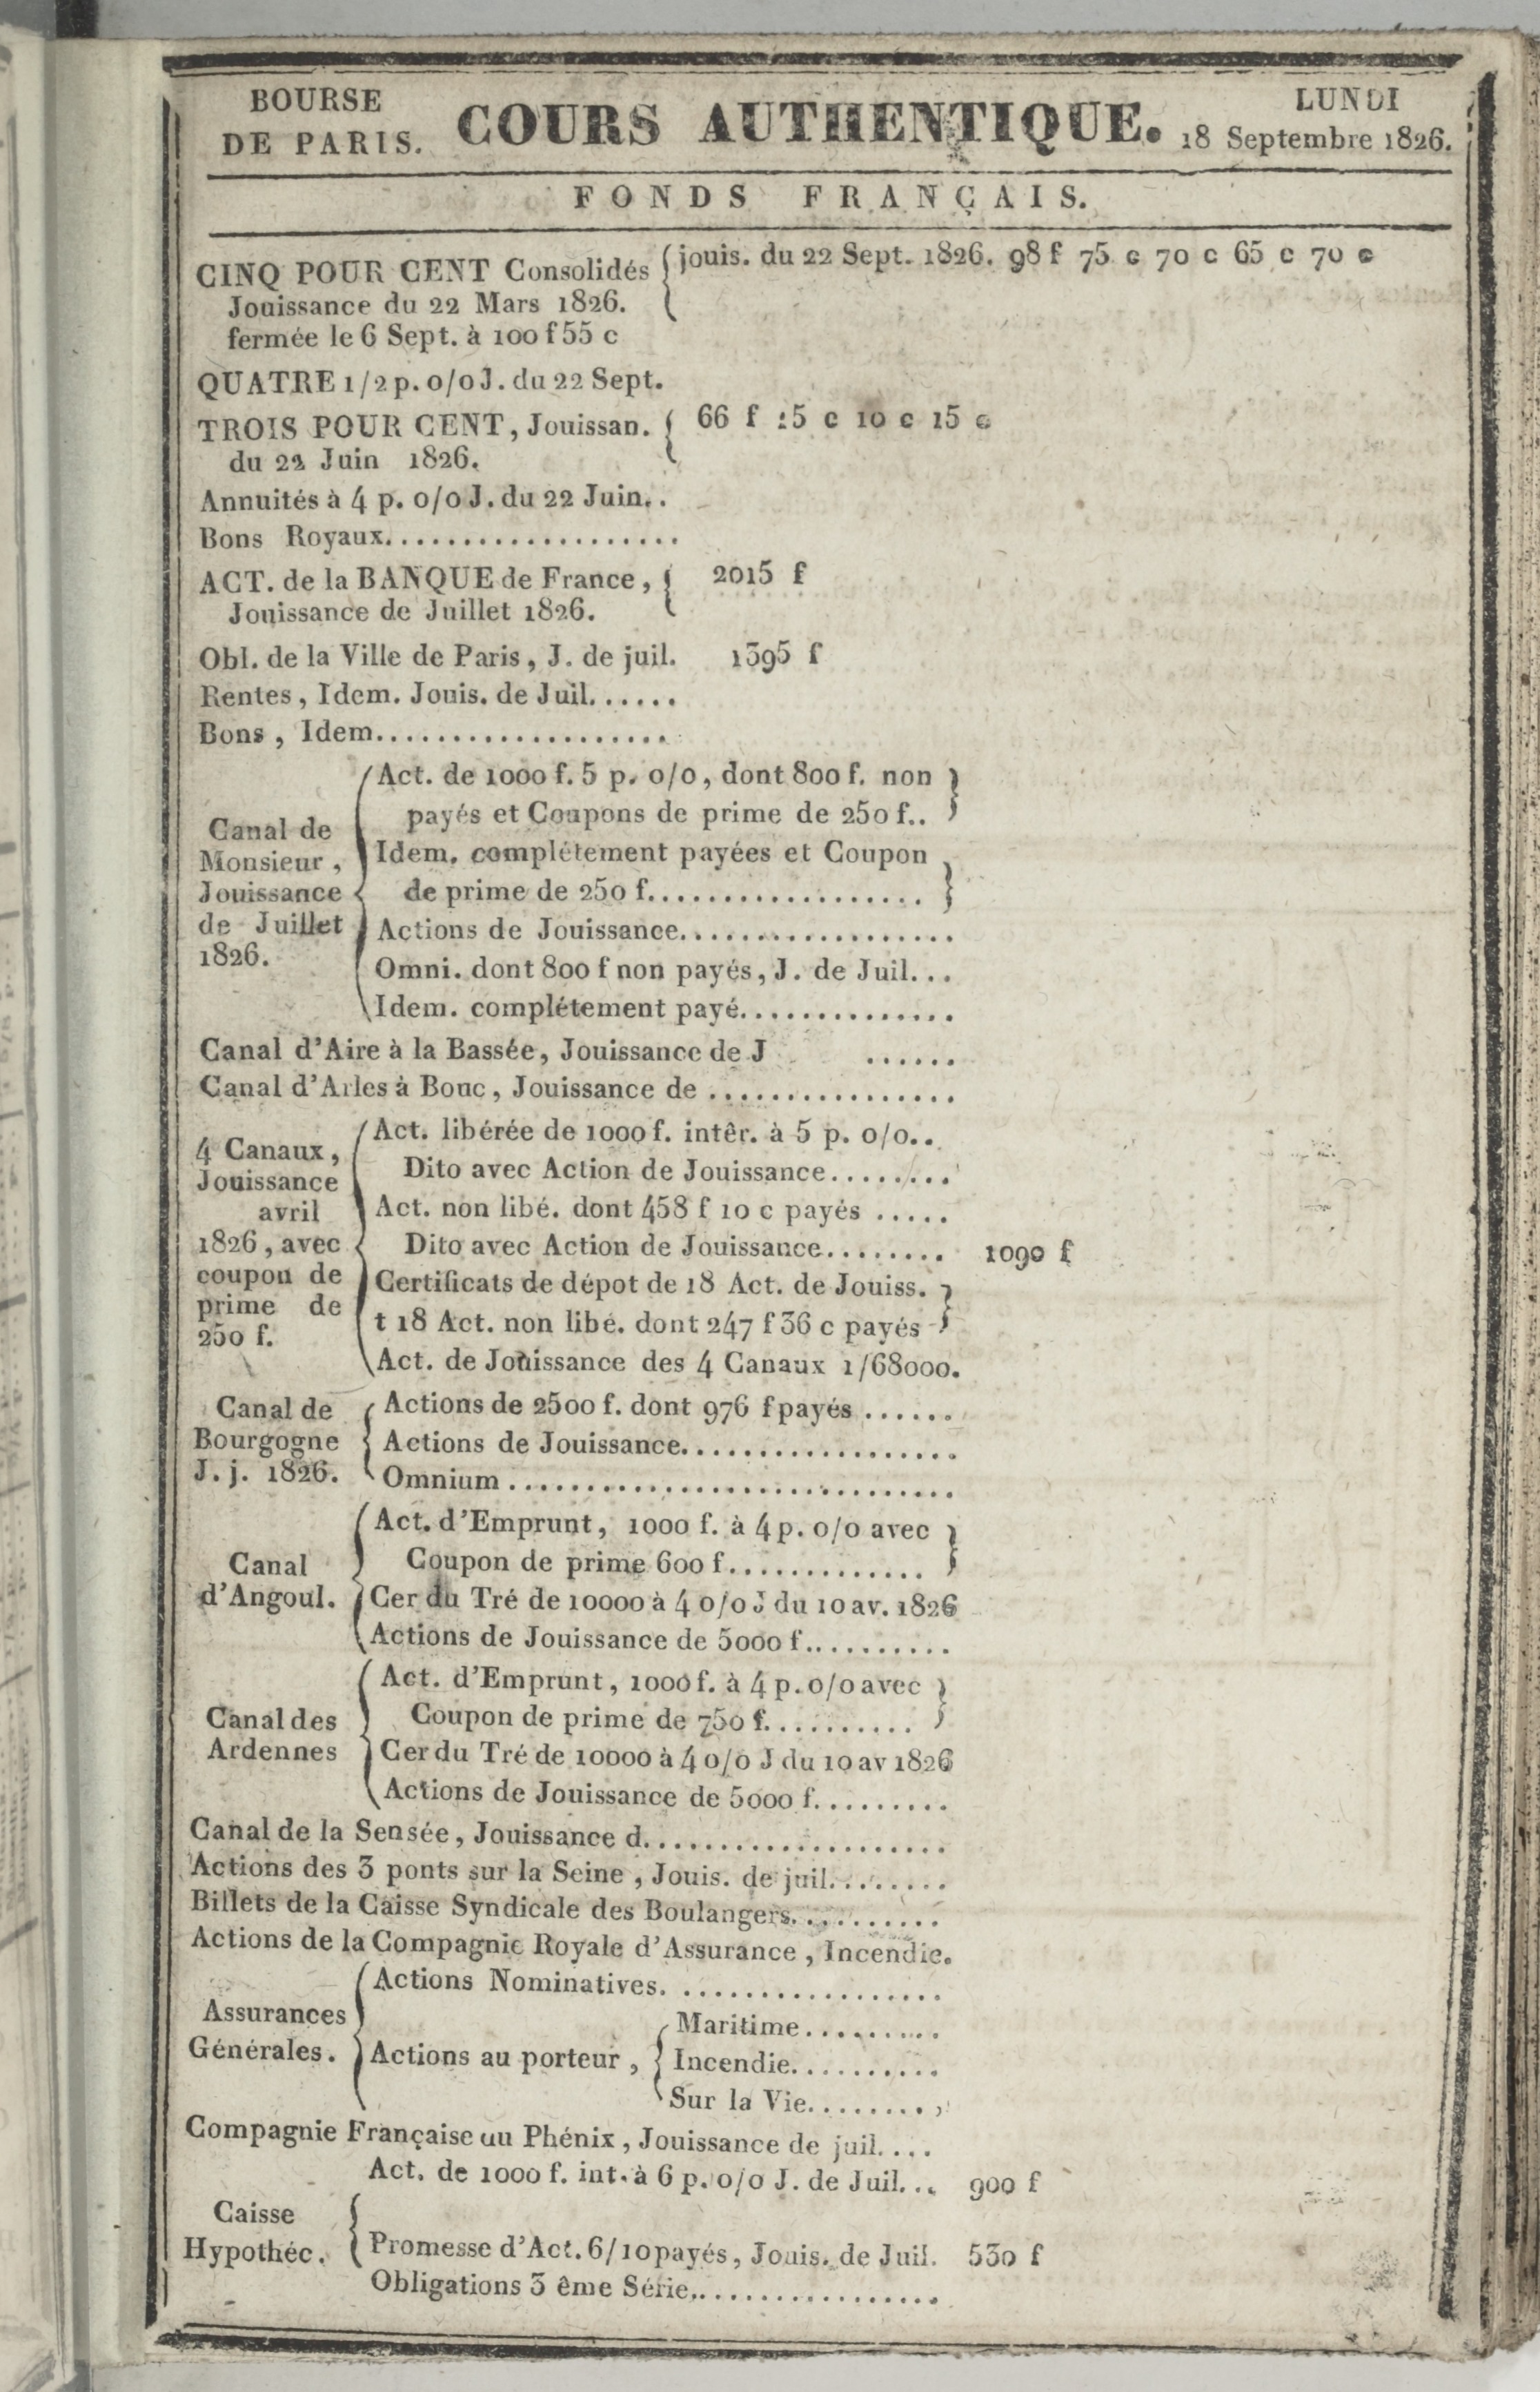 BOURSE
DE PARIS.
COURS AUTHENTIQUE.
LUNDI
18 Septembre 1826.
FONDS FRANÇAIS.
CINQ POUR CENT Consolidés { jouis. du 22 Sept. 1826. 98 f 75 c 70 c 65 c 70 c
Jouissance du 22 Mars 1826.
fermée le 6 Sept. à 100 f 55 c
QUATRE 1/2 p. 0/0 J. du 22 Sept.
TROIS POUR CENT, Jouissan. { 66 f 15 c 10 c 15 c
du 22 Juin 1826.
Annuités à 4 p. 0/0 J. du 22 Juin..
Bons Royaux...................
ACT. de la BANQUE de France, { 2015 f
Jouissance de Juillet 1826.
Obl. de la Ville de Paris, J. de juil. 1395 f
Rentes, Idem. Jouis. de Juil......
Bons, Idem...................
Canal de
Monsieur,
Jouissance
de Juillet
1826.
Act. de 1000 f. 5 p. 0/0, dont 800 f. non
payés et Coupons de prime de 250 f..
Idem. complétement payées et Coupon
de prime de 250 f..................
Actions de Jouissance..................
Omni. dont 800 f non payés, J. de Juil...
Idem. complétement payé..............
Canal d'Aire à la Bassée, Jouissance de J ......
Canal d'Arles à Bouc, Jouissance de ................
4 Canaux,
Jouissance
avril
1826, avec
coupon de
prime de
250 f.
Act. libérée de 1000 f. intêr. à 5 p. 0/0..
Dito avec Action de Jouissance........
Act. non libé. dont 458 f 10 c payés .....
Dito avec Action de Jouissance........ 1090 f
Certificats de dépot de 18 Act. de Jouiss.
t 18 Act. non libé. dont 247 f 36 c payés
Act. de Jouissance des 4 Canaux 1/68000.
Canal de
Bourgogne
J. j. 1826.
Actions de 2500 f. dont 976 f payés ......
Actions de Jouissance..................
Omnium .............................
Canal
d'Angoul.
Act. d'Emprunt, 1000 f. à 4 p. 0/0 avec
Coupon de prime 600 f.............
Cer du Tré de 10000 à 4 0/0 J du 10 av. 1826
Actions de Jouissance de 5000 f..........
Canal des
Ardennes
Act. d'Emprunt, 1000 f. à 4 p. 0/0 avec
Coupon de prime de 750 f..........
Cer du Tré de 10000 à 4 0/0 J du 10 av 1826
Actions de Jouissance de 5000 f.........
Canal de la Sensée, Jouissance d....................
Actions des 3 ponts sur la Seine, Jouis. de juil........
Billets de la Caisse Syndicale des Boulangers..........
Actions de la Compagnie Royale d'Assurance, Incendie.
Assurances
Générales.
Actions Nominatives. .................
Actions au porteur,
Maritime.........
Incendie..........
Sur la Vie........,
Compagnie Française du Phénix, Jouissance de juil....
Caisse
Hypothéc.
Act. de 1000 f. int. à 6 p. 0/0 J. de Juil... 900 f
Promesse d'Act. 6/10 payés, Jouis. de Juil. 530 f
Obligations 3 ême Série.................